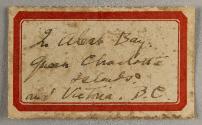 Alert Bay.
Queen Charlotte
Islands.
and Victoria. B.C